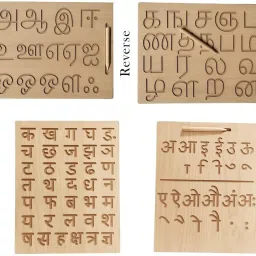 அ ஆ இ ஈ
உ ஊ எ ஏ ஐ
ஒ ஓ ஔ ஃ
Reverse
க ங ச ஞ ட
ண த ந ப ம
ய ர ல வ
ழ ள ற ன
क ख ग घ ङ
च छ ज झ ञ
ट ठ ड ढ ण
त थ द ध न
प फ ब भ म
य र ल व श
ष स ह क्ष त्र ज्ञ
अ आ इ ई उ ऊ
ा ि ी ु ू
ए ऐ ओ औ अं अः
े ै ो ौ